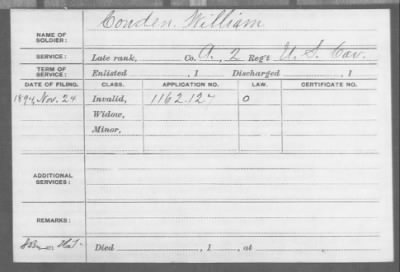 Conden, William
NAME OF SOLDIER:
SERVICE: Late rank, Co. A, 2 Reg't U.S. Cav.
TERM OF SERVICE: Enlisted , 1 Discharged , 1
DATE OF FILING. CLASS. APPLICATION NO. LAW. CERTIFICATE NO.
Nov. 24 Invalid, 1162127 O
Widow,
Minor,
ADDITIONAL SERVICES:
REMARKS:
Died , 1 , at